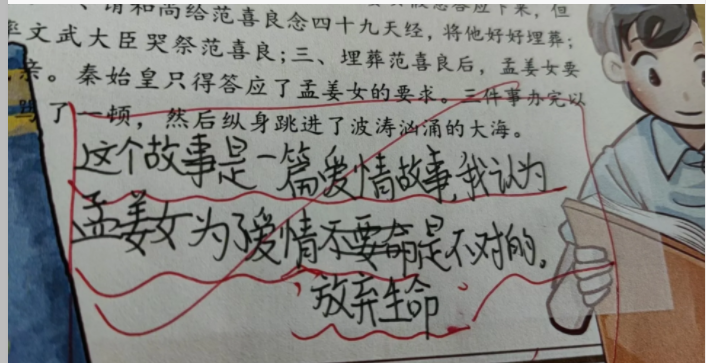 、请和尚给范喜良念四十九天经，将他好好埋葬；
率文武大臣哭祭范喜良；三、埋葬范喜良后，孟姜女要
亲。秦始皇只得答应了孟姜女的要求。三件事办完以
骂了一顿，然后纵身跳进了波涛汹涌的大海。
这个故事是一篇爱情故事，我认为
孟姜女为了爱情不要命是不对的。
放弃生命